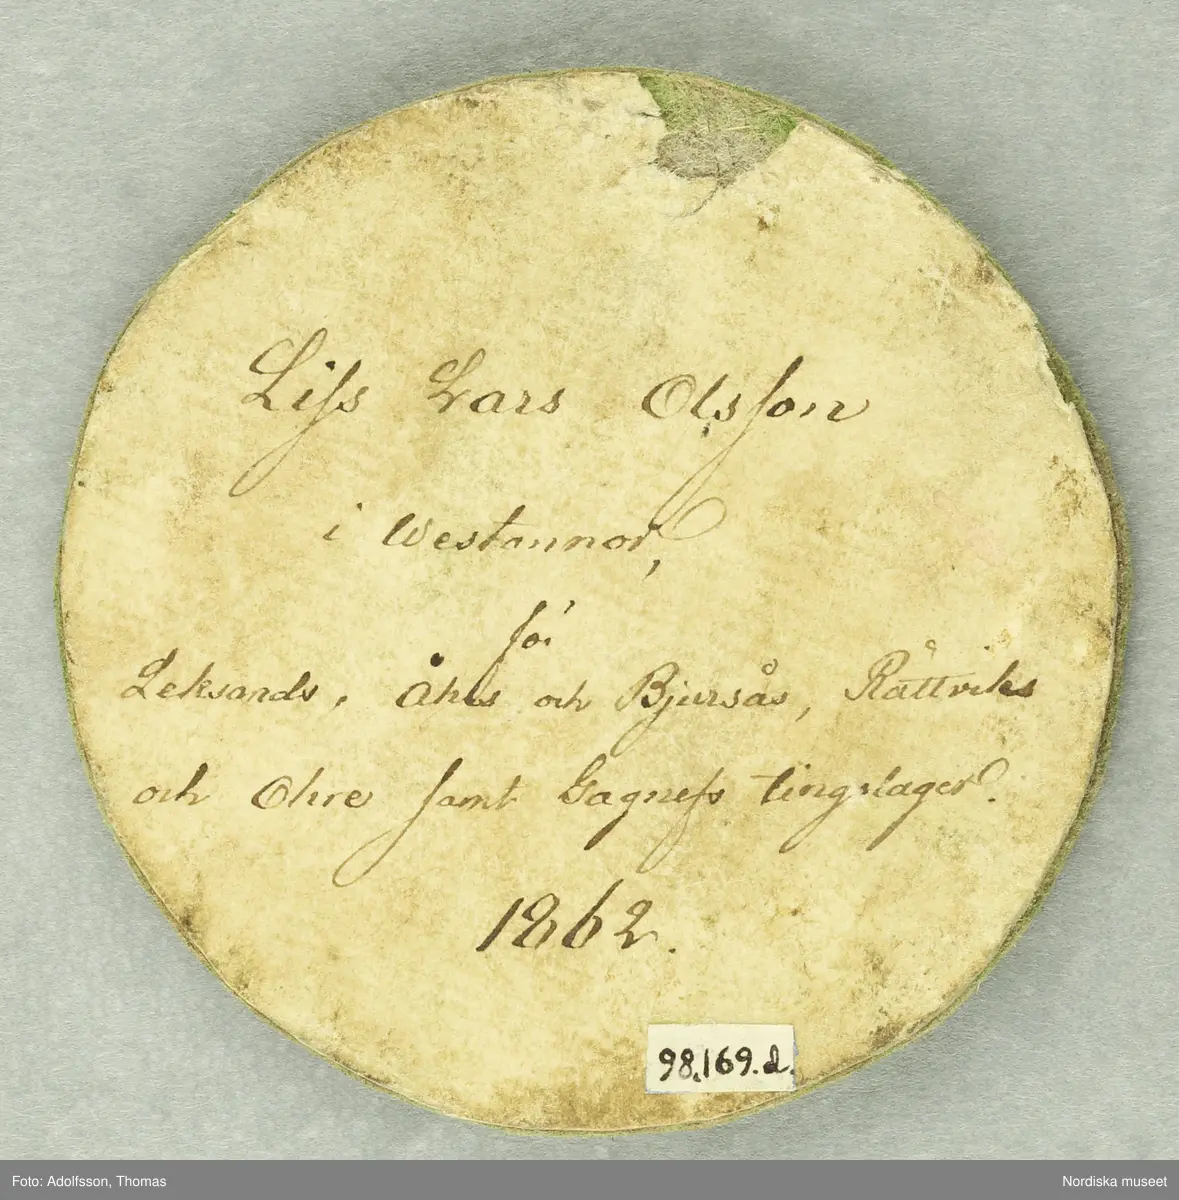 Liss Lars Olsson
i Westannor,
för
Leksands, Åhls och Bjursås, Rättviks
och Ohre samt Gagnefs tingslager.
1862.
98.169.d.
Foto: Adolfsson, Thomas
Nordiska museet